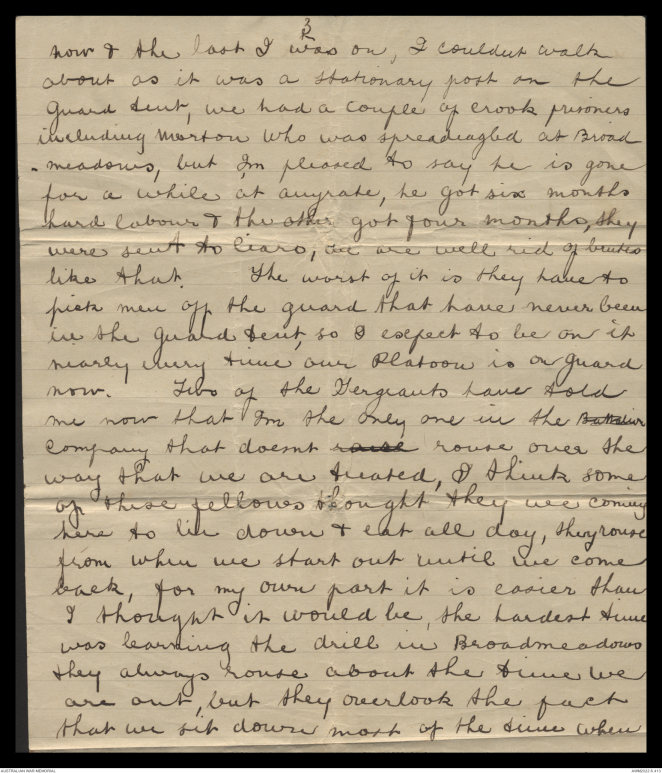 3
now & the last I was on, I couldnt walk
about as it was a stationary post on the
guard tent, we had a couple of crook prisoners
including Morton who was spreadeagled at Broad
-meadows, but I'm pleased to say he is gone
for a while at anyrate, he got six months
hard labour & the other got four months, they
were sent to Ciaro, we are well rid of brutes
like that. The worst of it is they have to
pick men off the guard that have never been
in the guard tent, so I expect to be on it
nearly every time our Platoon is on guard
now. Two of the Sergeants have told
me now that I'm the only one in the Battalion
company that doesnt rouse over the
way that we are treated, I think some
of these fellows thought they we coming
here to lie down & eat all day, they rouse
from when we start out until we come
back, for my own part it is easier than
I thought it would be, the hardest time
was learning the drill in Broadmeadows
they always rouse about the time we
are out, but they overlook the fact
that we sit down most of the time when
AUSTRALIAN WAR MEMORIAL